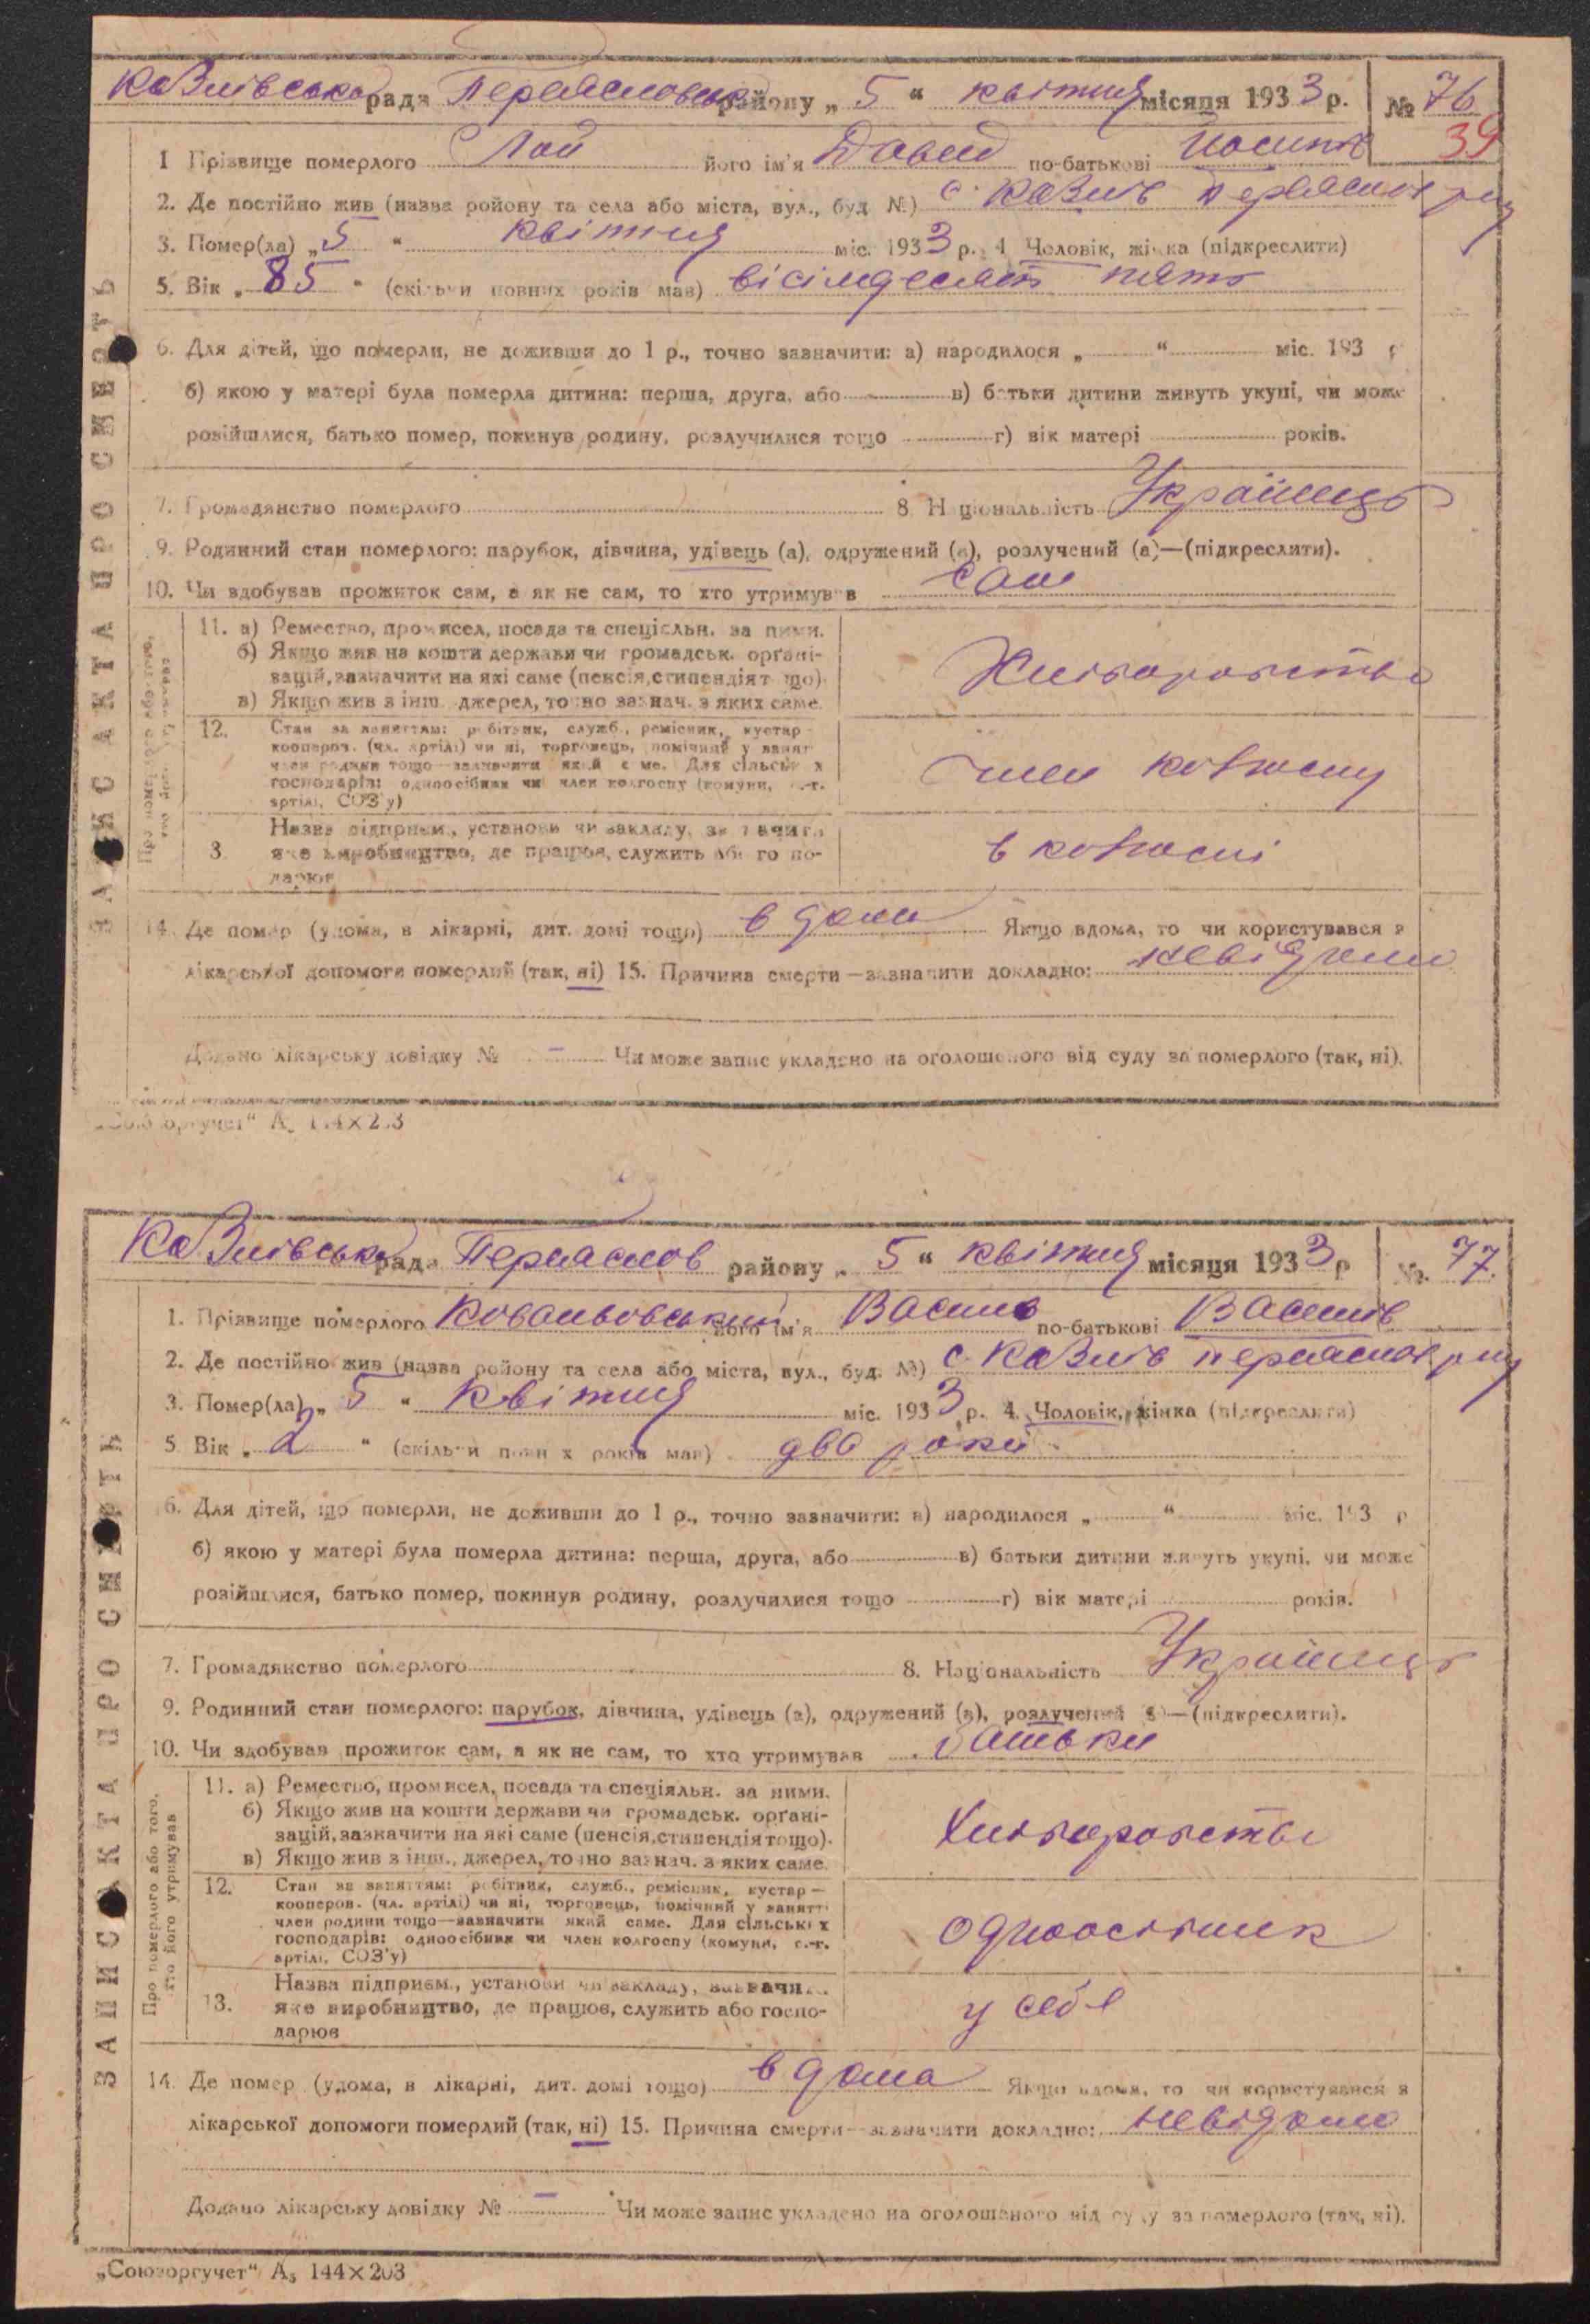 Козлівська рада Переяславськ району „ 5 “ квітня місяця 1933 р. № 76
39
1 Прізвище померлого Лой його ім'я Давид по-батькові Йосипів
2. Де постійно жив (назва ройону та села або міста, вул., буд №) с. Козлів Переяслав р-ну
3. Помер(ла) „5“ квітня міс. 1933 р. 4 Чоловік, жінка (підкреслити)
5. Вік „85“ (скільки повних років мав) вісімдесят пять
6. Для дітей, що померли, не доживши до 1 р., точно зазначити: а) народилося „ “ міс. 193 р
б) якою у матері була померла дитина: перша, друга, або в) батьки дитини живуть укупі, чи може
розійшлися, батько помер, покинув родину, розлучилися тощо г) вік матері років.
7. Громадянство померлого 8. Національність Українець
9. Родинний стан померлого: парубок, дівчина, удівець (а), одружений (а), розлучений (а)—(підкреслити).
10. Чи здобував прожиток сам, а як не сам, то хто утримував сам
ЗАПИС АКТА ПРО СМЕРТЬ
Про померлого або того, хто його утримував
11. а) Ремество, промисел, посада та спеціяльн. за ними.
б) Якщо жив на кошти держави чи громадськ. орґані-
зацій, зазначити на які саме (пенсія, стипендія тощо).
в) Якщо жив з інш. джерел, точно зазнач. з яких саме.
Хліборобство
12. Стан за заняттям: робітник, служб., ремісник, кустар—
кооперов. (чл. артілі) чи ні, торговець, помічний у занят
член родини тощо—зазначити який саме. Для сільських
господарів: одноосібник чи член колгоспу (комуни, с.-г.
артілі, СОЗ'у)
Член колгоспу
13. Назва підприєм., установи чи закладу, зазначити
яке виробництво, де працює, служить або госпо-
дарює
в колгоспі
14. Де помер (удома, в лікарні, дит. домі тощо) в дома Якщо вдома, то чи користувався з
лікарської допомоги померлий (так, ні) 15. Причина смерти—зазначити докладно: невідомо
Додано лікарську довідку № – Чи може запис укладено на оголошеного від суду за померлого (так, ні).
„Союзоргучет“ А₅ 144×203
Козлівська рада Переяслов району „ 5 “ квітня місяця 1933 р № 77
1. Прізвище померлого Ковальовський його ім'я Василь по-батькові Василів
2. Де постійно жив (назва ройону та села або міста, вул., буд. №) с. Козлів Переяслав р-ну
3. Помер(ла) „ 5 “ квітня міс. 1933 р. 4. Чоловік, жінка (підкреслити)
5 Вік „ 2 “ (скільки повних років мав) два роки
6. Для дітей, що померли, не доживши до 1 р., точно зазначити: а) народилося „ “ міс. 193 р
б) якою у матері була померла дитина: перша, друга, або в) батьки дитини живуть укупі, чи може
розійшлися, батько помер, покинув родину, розлучилися тощо г) вік матері років.
7. Громадянство померлого 8. Національність Українець
9. Родинний стан померлого: парубок, дівчина, удівець (а), одружений (а), розлучений (а)—(підкреслити).
10. Чи здобував прожиток сам, а як не сам, то хто утримував батьки
ЗАПИС АКТА ПРО СМЕРТЬ
Про померлого або того, хто його утримував
11. а) Ремество, промисел, посада та спеціяльн. за ними.
б) Якщо жив на кошти держави чи громадськ. орґані-
зацій, зазначити на які саме (пенсія, стипендія тощо).
в) Якщо жив з інш., джерел, точно зазнач. з яких саме.
Хліборобство
12. Стан за заняттям: робітник, служб., ремісник, кустар—
кооперов. (чл. артілі) чи ні, торговець, помічний у занятті
член родини тощо—зазначити який саме. Для сільських
господарів: одноосібник чи член колгоспу (комуни, с.-г.
артілі, СОЗ'у)
одноосібник
13. Назва підприєм., установи чи закладу, зазначити
яке виробництво, де працює, служить або госпо-
дарює
у себе
14. Де помер (удома, в лікарні, дит. домі тощо) в дома Якщо вдома, то чи користувався з
лікарської допомоги померлий (так, ні) 15. Причина смерти—зазначити докладно: невідомо
Додано лікарську довідку № – Чи може запис укладено на оголошеного від суду за померлого (так, ні).
„Союзоргучет“ А₅ 144×203